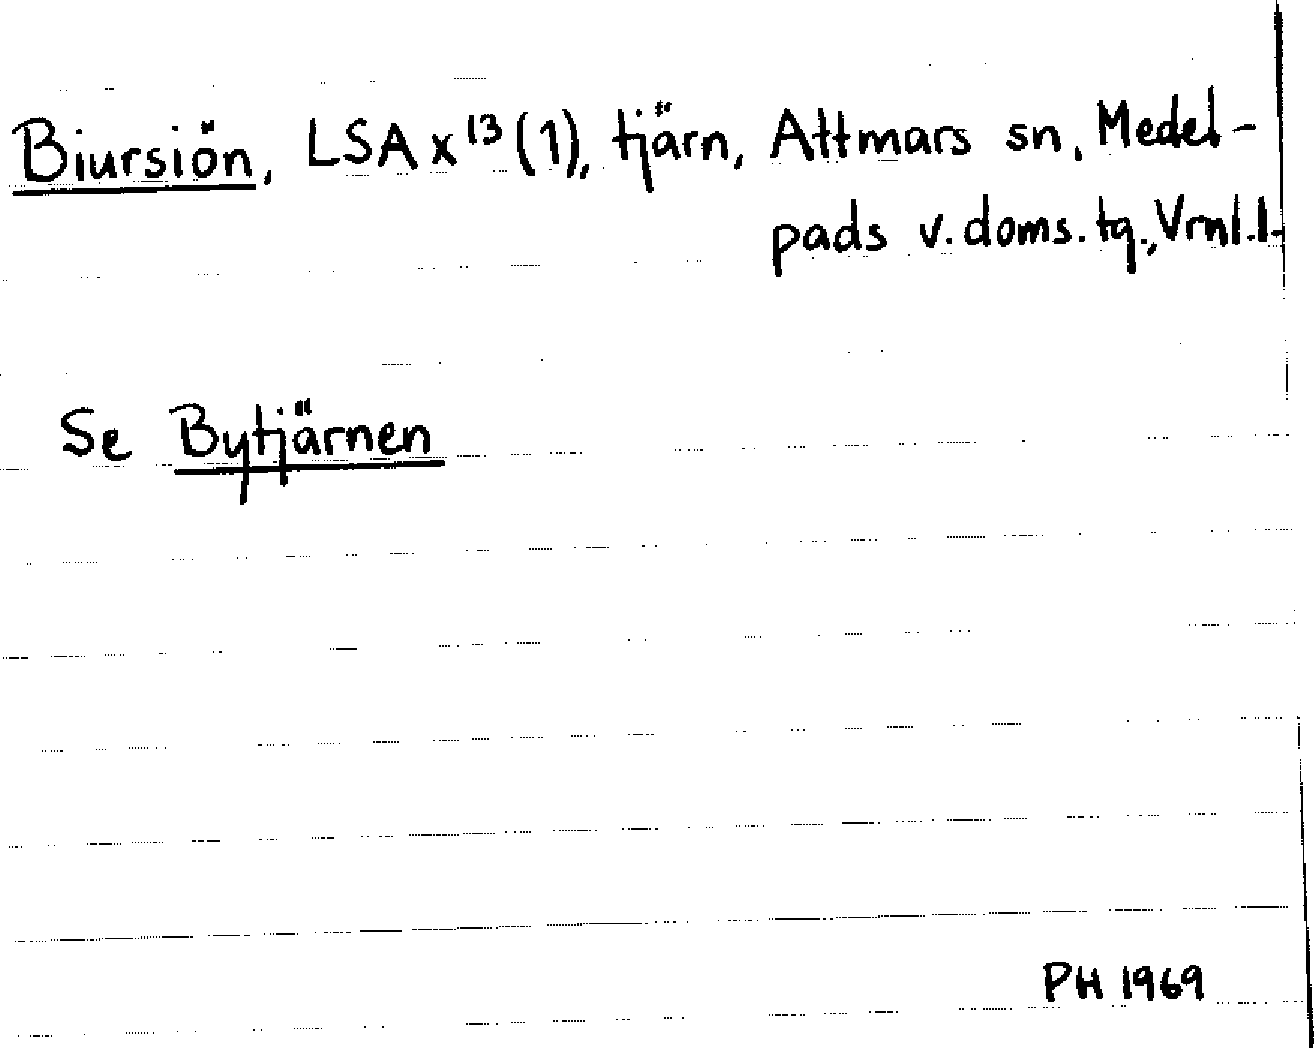 Biursiön, LSA x¹³(1), tjärn, Attmars sn, Medel-
pads v. doms. tg., Vrnl. l.
Se Bytjärnen
PH 1969